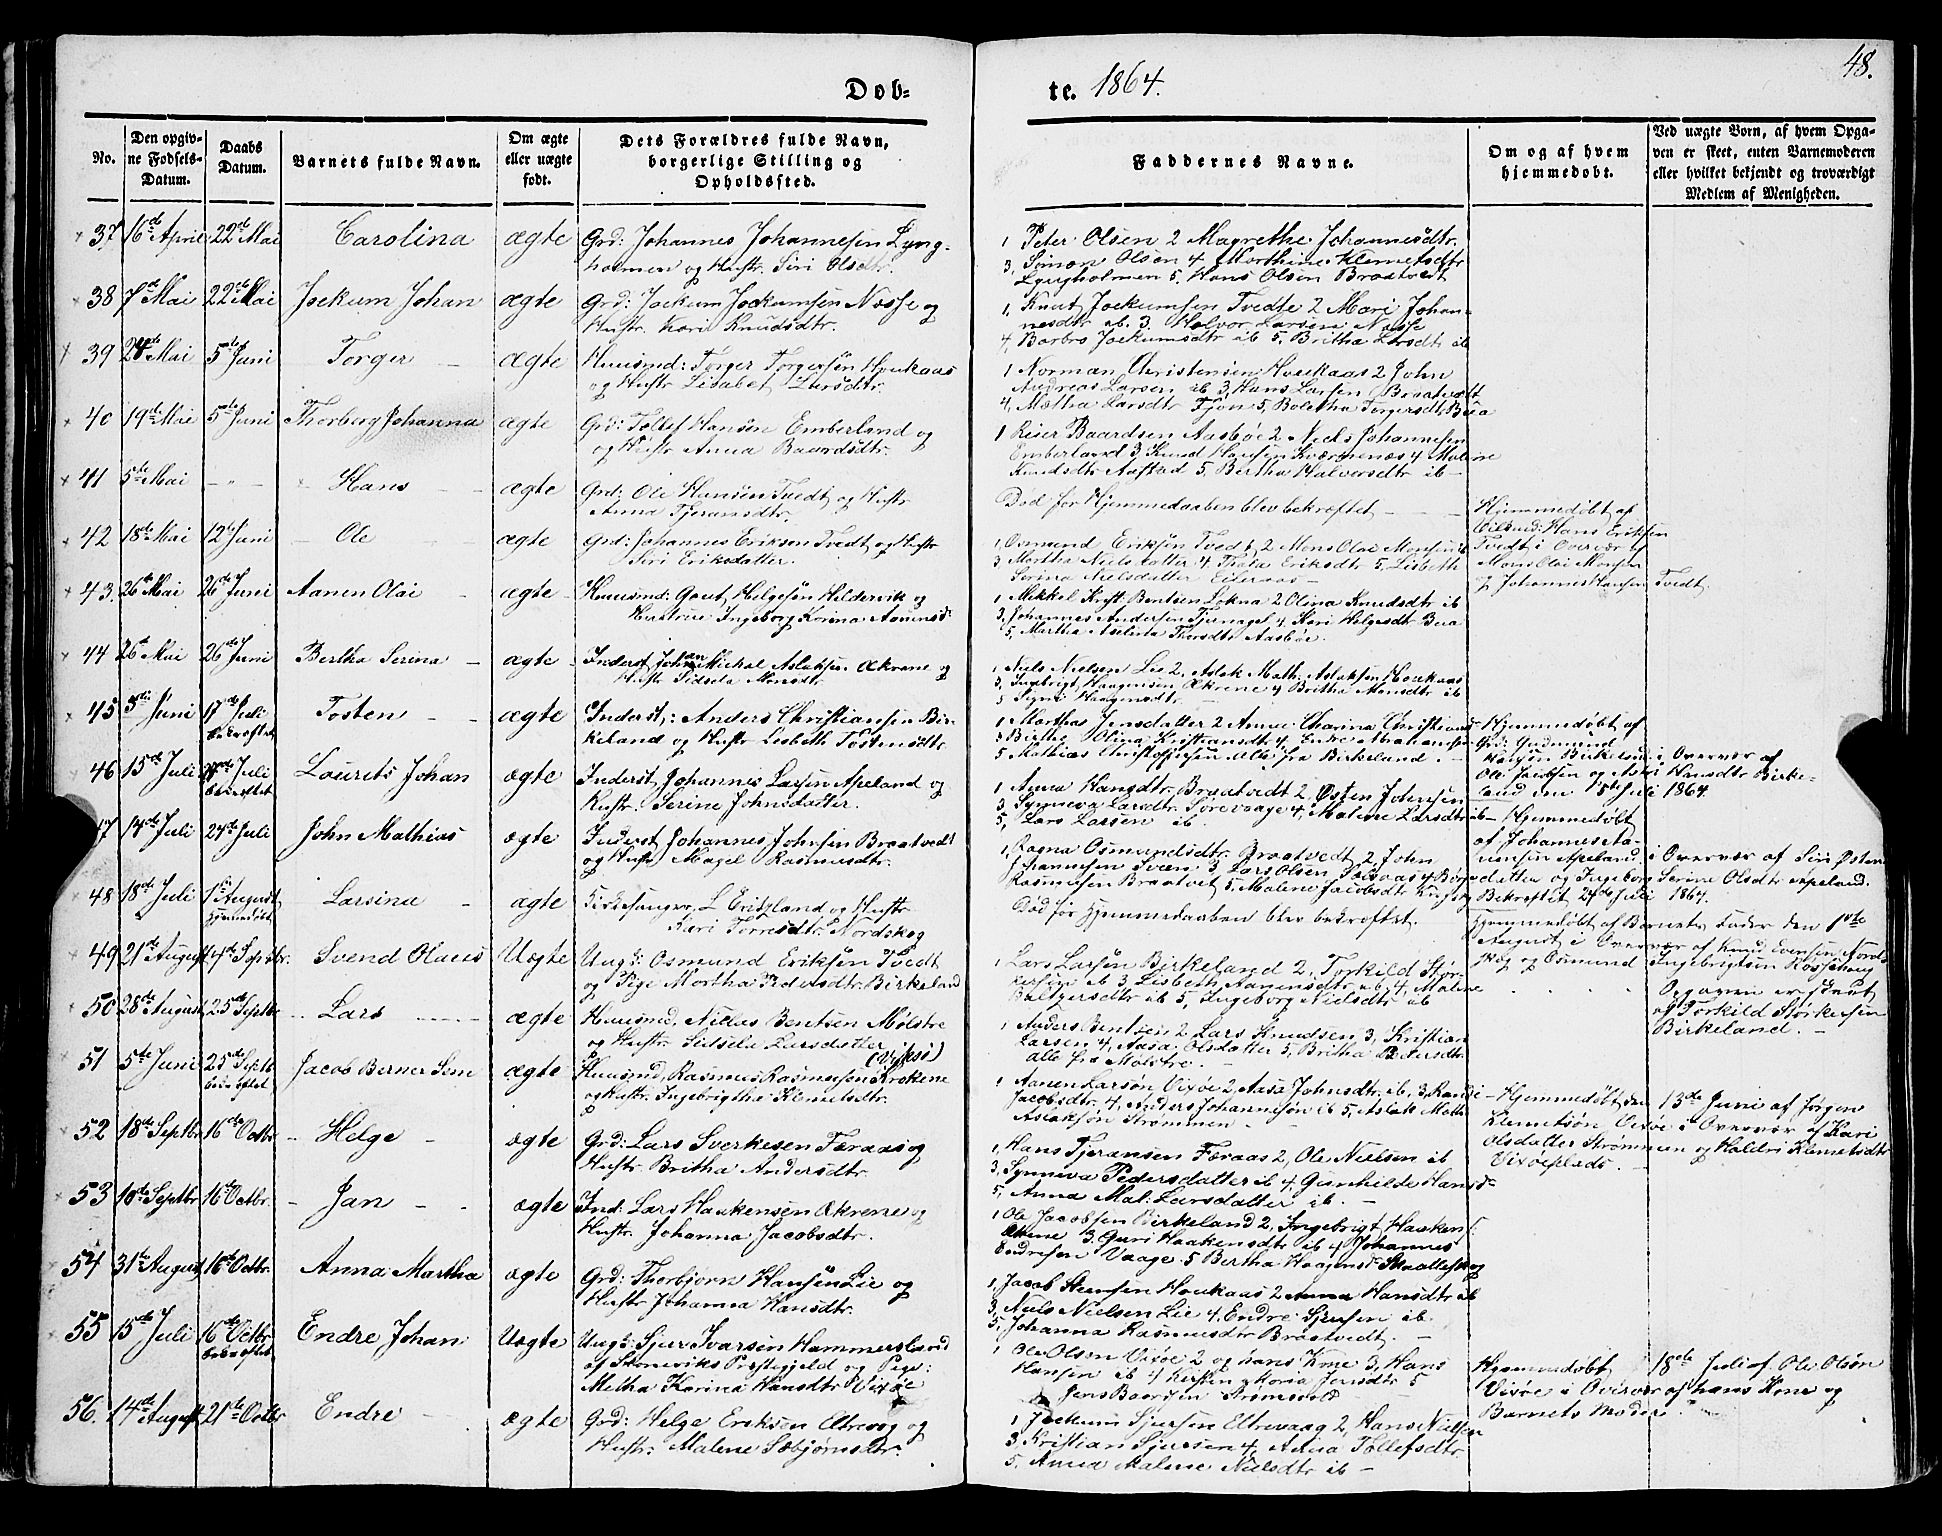 48.
Døb-
te. 1864.
No.
Den opgiv-
ne Fødsels-
Datum.
Daabs
Datum.
Barnets fulde Navn.
Om ægte
eller uægte
født.
Dets Forældres fulde Navn,
borgerlige Stilling og
Opholdssted.
Faddernes Navne.
Om og af hvem
hjemmedøbt.
Ved uægte Børn, af hvem Opga-
ven er skeet, enten Barnemoderen
eller hvilket bekjendt og troværdigt
Medlem af Menigheden.
37 16de April 22de Mai Carolina ægte Grd: Johannes Johannesen Lyng-
holmen og Hustr. Siri Olsdtr.
1 Peter Olsen 2 Magrethe Johannesdtr.
3, Simon Olsen 4 Marthine Klemetsdtr
Lyngholmen 5. Hans Olsen Braatvedt
38 7de Mai 22de Mai Jockum Johan ægte Grd: Jockum Jockumsen Næsse og
Hustr. Kari Knudsdtr.
1, Knut Jockumsen Tvedte 2 Mari Johan-
nesdtr ib. 3. Halvor Larsen Næsse
4, Barbro Jockumsdtr ib 5, Britha Larsdtr ib
39 28de Mai 5te Juni Torger ægte Huusmd: Torger Torgersen Houkaas
og Hustr Lisabet Larsdtr.
1 Norman Christensen Houkaas 2 John
Andreas Larsen ib 3, Hans Larsen Braatvedt
4, Mætha Larsdtr Tjøn 5, Boletha Torgersdtr Bua
40 19de Mai 5te Juni Thorberg Johanna ægte Grd: Tollef Hansen Emberland og
og Hustr Anna Baardsdtr.
1 Reier Baardsen Aasbøe 2 Niels Johannesen
Emberland 3, Knud Hansen Kværnenæs 4 Malene
Knudsdtr Aafstad 5, Bertha Halvorsdtr ib -
41 5te Mai - " - Hans ægte Grd: Ole Hansen Tvedt og Hustr
Anna Tjeransdtr.
Død før Hjemmedaaben blev bekræftet
Hjemmedøbt af
Hans Eriksen
Tvedt i Overvær af
Mons Olai Monsen
og Johannes Hansen Tvedt.
42 18de Mai 12te Juni Ole ægte Grd: Johannes Eriksen Tvedt og Hustr
Siri Eriksdatter.
1, Osmund Eriksen Tvedt, 2 Mons Olai Monsen ib
3 Martha Nielsdatter 4 Thala Eriksdtr 5, Lisbeth
Serina Nielsdatter Eileraas -
43. 26de Mai 26de Juni Aanen Olai ægte Huusmd: Gaut Helgesen Hildervik og
Hustrue Ingeborg Korena Aanensd:
1 Mikkel Krist: Bentsen Løkna 2 Olina Knudsdtr ib
3, Johannes Andersen Tjernagel 4, Kari Helgesdtr Bua
5, Martha Aselena Thorsdtr Aasbøe.
44 26de Mai 26de Juni Bertha Serina ægte Inderst Johan Michal Aslaksen Ækrene og
Hustr Sidsela Monsdtr.
1, Niels Nielsen Lie 2, Aslak Math: Aslaksen Houkaas
3, Ingebrigt Haagensen Ækrene 4 Britha Monsdtr ib
5 Signi Haagensdtr.
45 3die Juni 17de Juli bekræftet Tosten ægte Inderst,: Anders Christiansen Bir-
keland og Hustr Lisbeth Tostensdtr
1 Marthas Jensdatter 2 Anne Charina Christians
3 Birthe Olina Kristiansdtr 4,
5 Mathias Christoffersen alle fra Birkeland.
Hjemmedøbt af
Grd: Gudmund
Hansen Birkeland i Overvær af
Ole Jacobsen og Hansdtr Birke-
land den 15de Juli 1864.
46 15de Juli Juli bekræftet Lourits Johan ægte Inderst, Johannes Larsen Apeland og
Hustr. Serine Johnsdatter.
1 Anna Hansdtr, Braatvedt 2, Østen Johnsen
3 Synneva Larsdtr Sørevaage 4, Malene Larsdtr ib
5, Lars Larsen ib.
Hjemmedøbt
af Johannes
Apeland. i Overvær af Siri Østens
datter og Ingeborg Serine Olsdtr Apeland.
Bekræftet 24de Juli 1864.
47 14de Juli 24de Juli John Mathias ægte Inderst Johannes Johnsen Braatvedt
og Hustr Magel Rasmusdtr.
1, Ragna Osmundsdtr. Braatvedt 2, John
Johannesen Sveen 3, Lars Olsen 4
Rasmusen Braatvet 5, Malene Jacobsdtr
48 18de Juli 1ste August, hjemmedøbt Larsina ægte Kirkesanger, L Eritzland og Hustr
Kari Torresdtr. Nordskog
Død før Hjemmedaaben blev bekræftet.
Hjemmedøbt af Barnets Fader den 1ste
August i Overvær af Knud Evensen Nord-
skog og Osmund Ingebrigtsen
49 21de August 4de Septbr. Svend Olaus Uægte Ungk: Osmund Eriksen Tvedt
og Pige Martha Pedersdtr. Birkeland
1, Lars Larsen Birkeland 2, Torkild Stør-
kersen ib 3, Lisbeth Aanensdtr ib, 4, Malene
Baltzersdtr ib 5, Ingeborg Nielsdtr ib
Opgaven er skeet
af Torkild Størkersen
Birkeland. -
50 28de August 25de Septbr Lars ægte Huusmd, Nillas Bentsen Mølstre
og Hustr Sidsela Larsdatter
1 Anders Bentsen 2 Lars Knudsen 3, Kristian
Larsen 4, Aasa Olsdatter 5, Britha Petersdtr
alle fra Mølstre. -
51 5te Juni 25de Septb bekræftet Jacob Berner Sem ægte Huusmd, Rasmus Rasmussen Krokene
og Hustr. Ingebrigtha Klemetsdtr.
1 Aanen Larsøn Vixøe 2, Aasa Johnsdtr. ib, 3, Randi
Jacobsdtr. 4, Anders Johannesøn ib 5, Aslak Math:
Aslaksøn Strømmen
Hjemmedøbt den 13de Juni af Jørgen
Klemetsøn, Vixøe i Overvær af Kari
Olsdatter Strømmen og Haldri Klemetsdtr
Vixøeplads.
52 18de Septbr 16de Octbr Helge ægte Grd: Lars Sverkesen Færaas og
Hustr. Britha Andersdtr.
1, Hans Tjeransen Færaas 2, Ole Nielsen ib
3, Synneva Pedersdatter ib 4, Gunhilde Hansd:
5, Anna Mal: Larsdatter ib.
53 10de Septbr 16de Octbr. Jan ægte Ind: Lars Haakensen Ækrene og
Hustr. Johanna Jacobsdtr.
1, Ole Jacobsen Birkeland 2, Ingebrigt Haakens:
Ækrene 3, Guri Haakensdtr ib 4 Johannes
Endresen Vaage. 5 Bertha Haagensd:
54 31te August 16de Octbr. Anna Martha ægte Grd: Thorbjørn Hansen Lie og
Hustr Johanna Hansdtr.
1, Jacob Steensen Houkaas 2 Anna Hansdtr ib
3, Niels Nielsen Lie 4, Endre Sjursen ib.
5, Johanna Rasmusdtr Braatvedt.
55 15de Juli 16de Octbr bekræftet Endre Johan Uægte Ungk: Sjur Ivarsen Hammersland
af Skoneviks Præstegjeld og Pige:
Metha Karina Hansdtr Vixøe
1 Ole Olsen Vixøe 2 og hans Kone 3, Hans
Hansen ib 4 Kirsten Maria Jensdtr 5
Jens Baarsen
Hjemmedøbt 18de Juli af Ole Olsøn
Vixøe i Overvær af hans Kone og
Barnets Moder.
56. 14de August 21de Octbr Endre ægte Grd: Helge Eriksen Eltrevaag og
Hustr: Malene Sæbjørnsdtr.
1, Jockum Sjursen Eltrevaag 2, Hans Nielsen
3, Kristian Sjursen 4, Anna Tollefsdtr.
5. Anna Malene Nielsdtr ib -